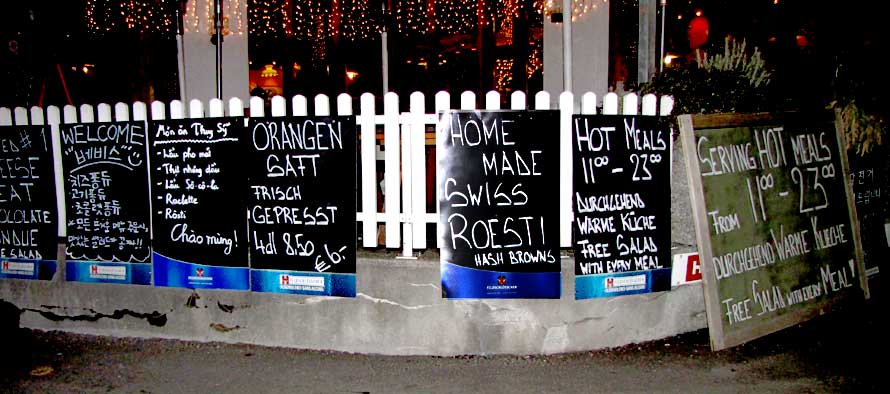 ED # 1
EESE
EAT
OCOLATE
NDUE
E SALAD
WELCOME
"베비스"
치즈퐁듀
고기퐁듀
초콜렛퐁듀
Món ăn Thụy Sỹ
- Lẩu pho mai
- Thịt nhúng dầu
- Lẩu Sô-cô-la
- Raclette
- Rösti
Chào mừng!
ORANGEN
SAFT
FRISCH
GEPRESST
4dl 8.50
€6,-
HOME
MADE
SWISS
ROESTI
HASH BROWNS
FELDSCHLÖSSCHEN
HOT MEALS
11⁰⁰ - 23⁰⁰
DURCHGEHEND
WARME KÜCHE
FREE SALAD
WITH EVERY MEAL
H
SERVING HOT MEALS
FROM 11⁰⁰ - 23⁰⁰
DURCHGEHEND WARME KUECHE
FREE SALAD WITH EVERY MEAL!